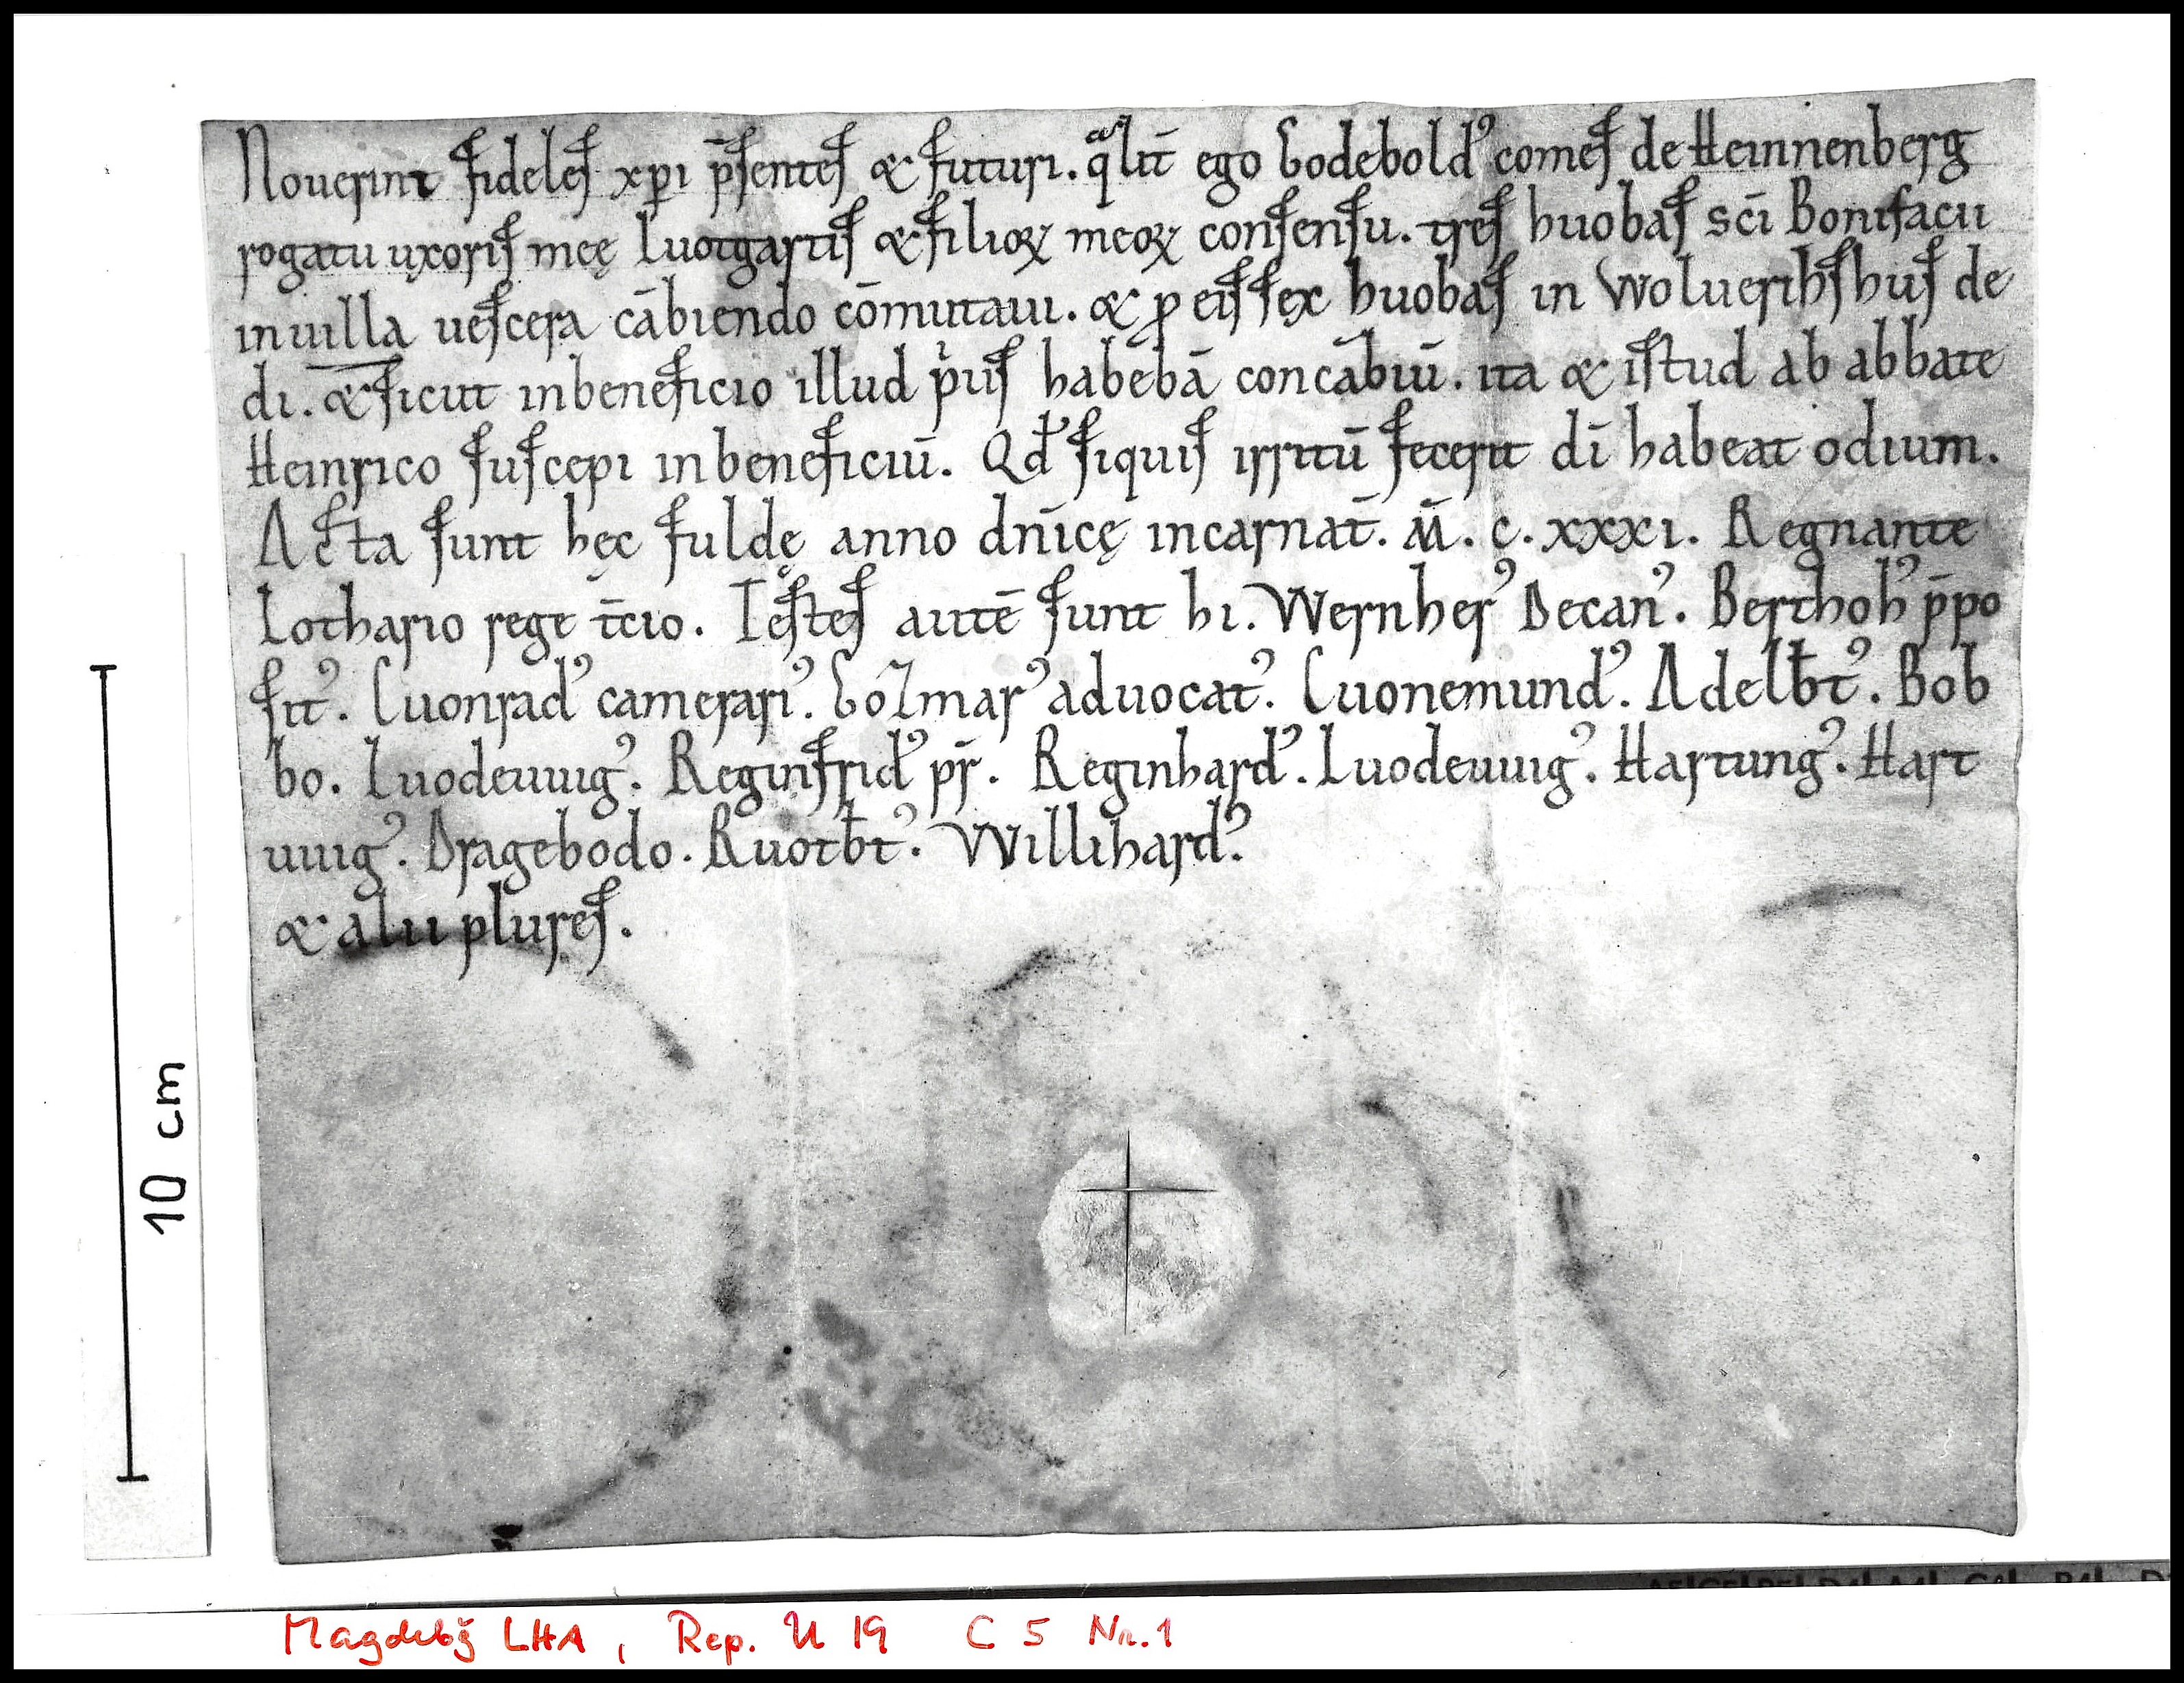 Nouerint fideles xp̄i p̄sentes & futuri. qᵃlit̄ ego Godebold' comes de Heinnenberg
rogatu uxoris meę Luotgartis & filioꝝ meoꝝ consensu. tres huobas sc̄i Bonifacii
in uilla uescera cābiendo cōmutaui. & ꝓ eis sex huobas in Woluerihshus de
di. & sicut in beneficio illud pius habebā concābiū. ita & istud ab abbate
Heinrico suscepi in beneficiū. Qd̄ siquis irritū fecerit di̅ habeat odium.
Acta sunt hęc fuldę anno dn̄icę incarnat̄. M̄. c. xxxi. Regnante
Lothario rege t̄cio. Testes autē sunt hi. Wernher' Decan'. Berthoh' p̄po
sit'. Cuonrad' camerari'. Gozmar' aduocat'. Cuonemund'. Adelb̄t'. Bob
bo. Luodeuuig'. Reginfrid' pr̄. Reginhard'. Luodeuuig'. Hartung'. Hart
uuig'. Dragebodo. Ruotb̄t'. Willihard'.
& alii plures.
10 cm
Magdebg̃ LHA, Rep. U 19 C 5 Nr. 1